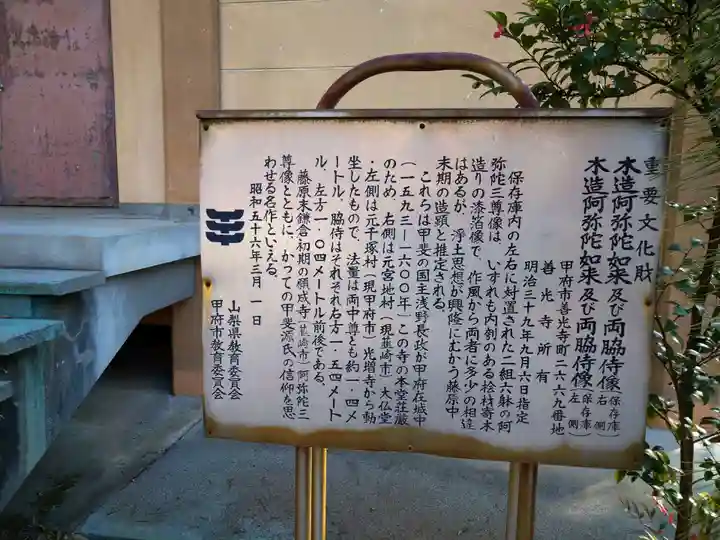 重要文化財
木造阿弥陀如来及び両脇侍像(保存庫右側)
木造阿弥陀如来及び両脇侍像(保存庫左側)
甲府市善光寺町二六六九番地
善光寺所有
明治三十九年九月六日指定
保存庫内の左右に対置された二組六躰の阿
弥陀三尊像は、いずれも内刳のある桧材寄木
造りの漆箔像で、作風から両者に多少の相違
はあるが、浄土思想が興隆にむかう藤原中
末期の造顕と推定される。
これらは甲斐の国主浅野長政が甲府在城中
(一五九三―一六〇〇年)この寺の本堂荘厳
のため、右側は元宮地村(現韮崎市)大仏堂
・左側は元千塚村(現甲府市)光増寺から動
坐したもので、法量は両中尊とも約一・四メ
ートル、脇侍はそれぞれ右方一・五四メート
ル、左方一・〇四メートル前後である。
藤原末鎌倉初期の願成寺(韮崎市)阿弥陀三
尊像とともに、かつての甲斐源氏の信仰を思
わせる名作といえる。
昭和五十六年三月一日
山梨県教育委員会
甲府市教育委員会